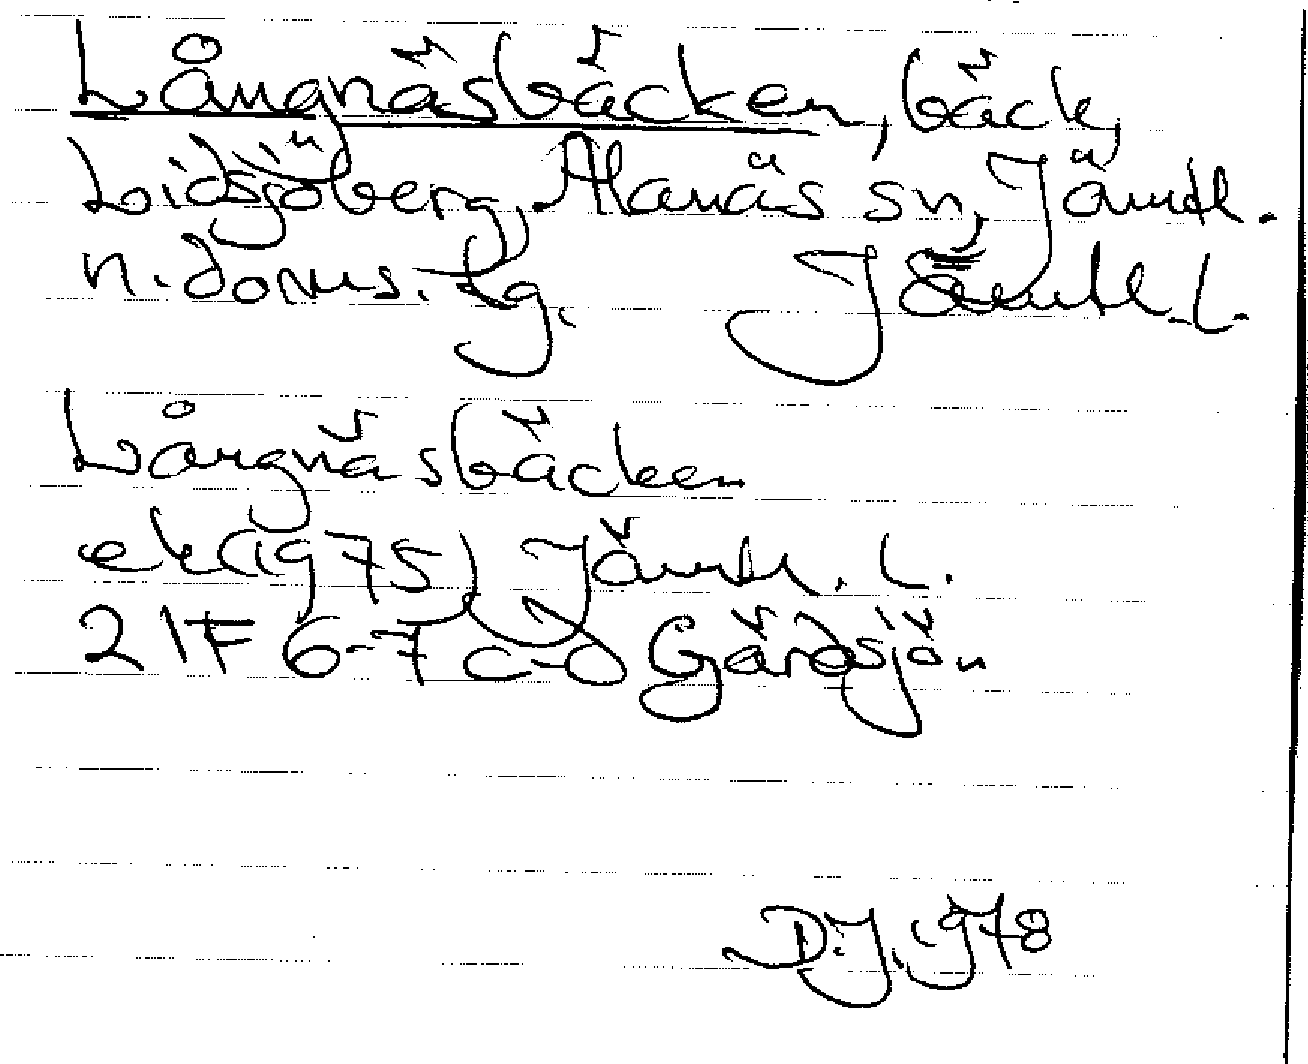 Långnäsbäcken, bäck,
Lidsjöberg, Alanäs sn, Jämtl.
n. doms. tg. Jämtl. l.
Långnäsbäcken
ek (1975) Jämtl. l.
21F 6-7 c-d Gärdsjön
D.J. 1978